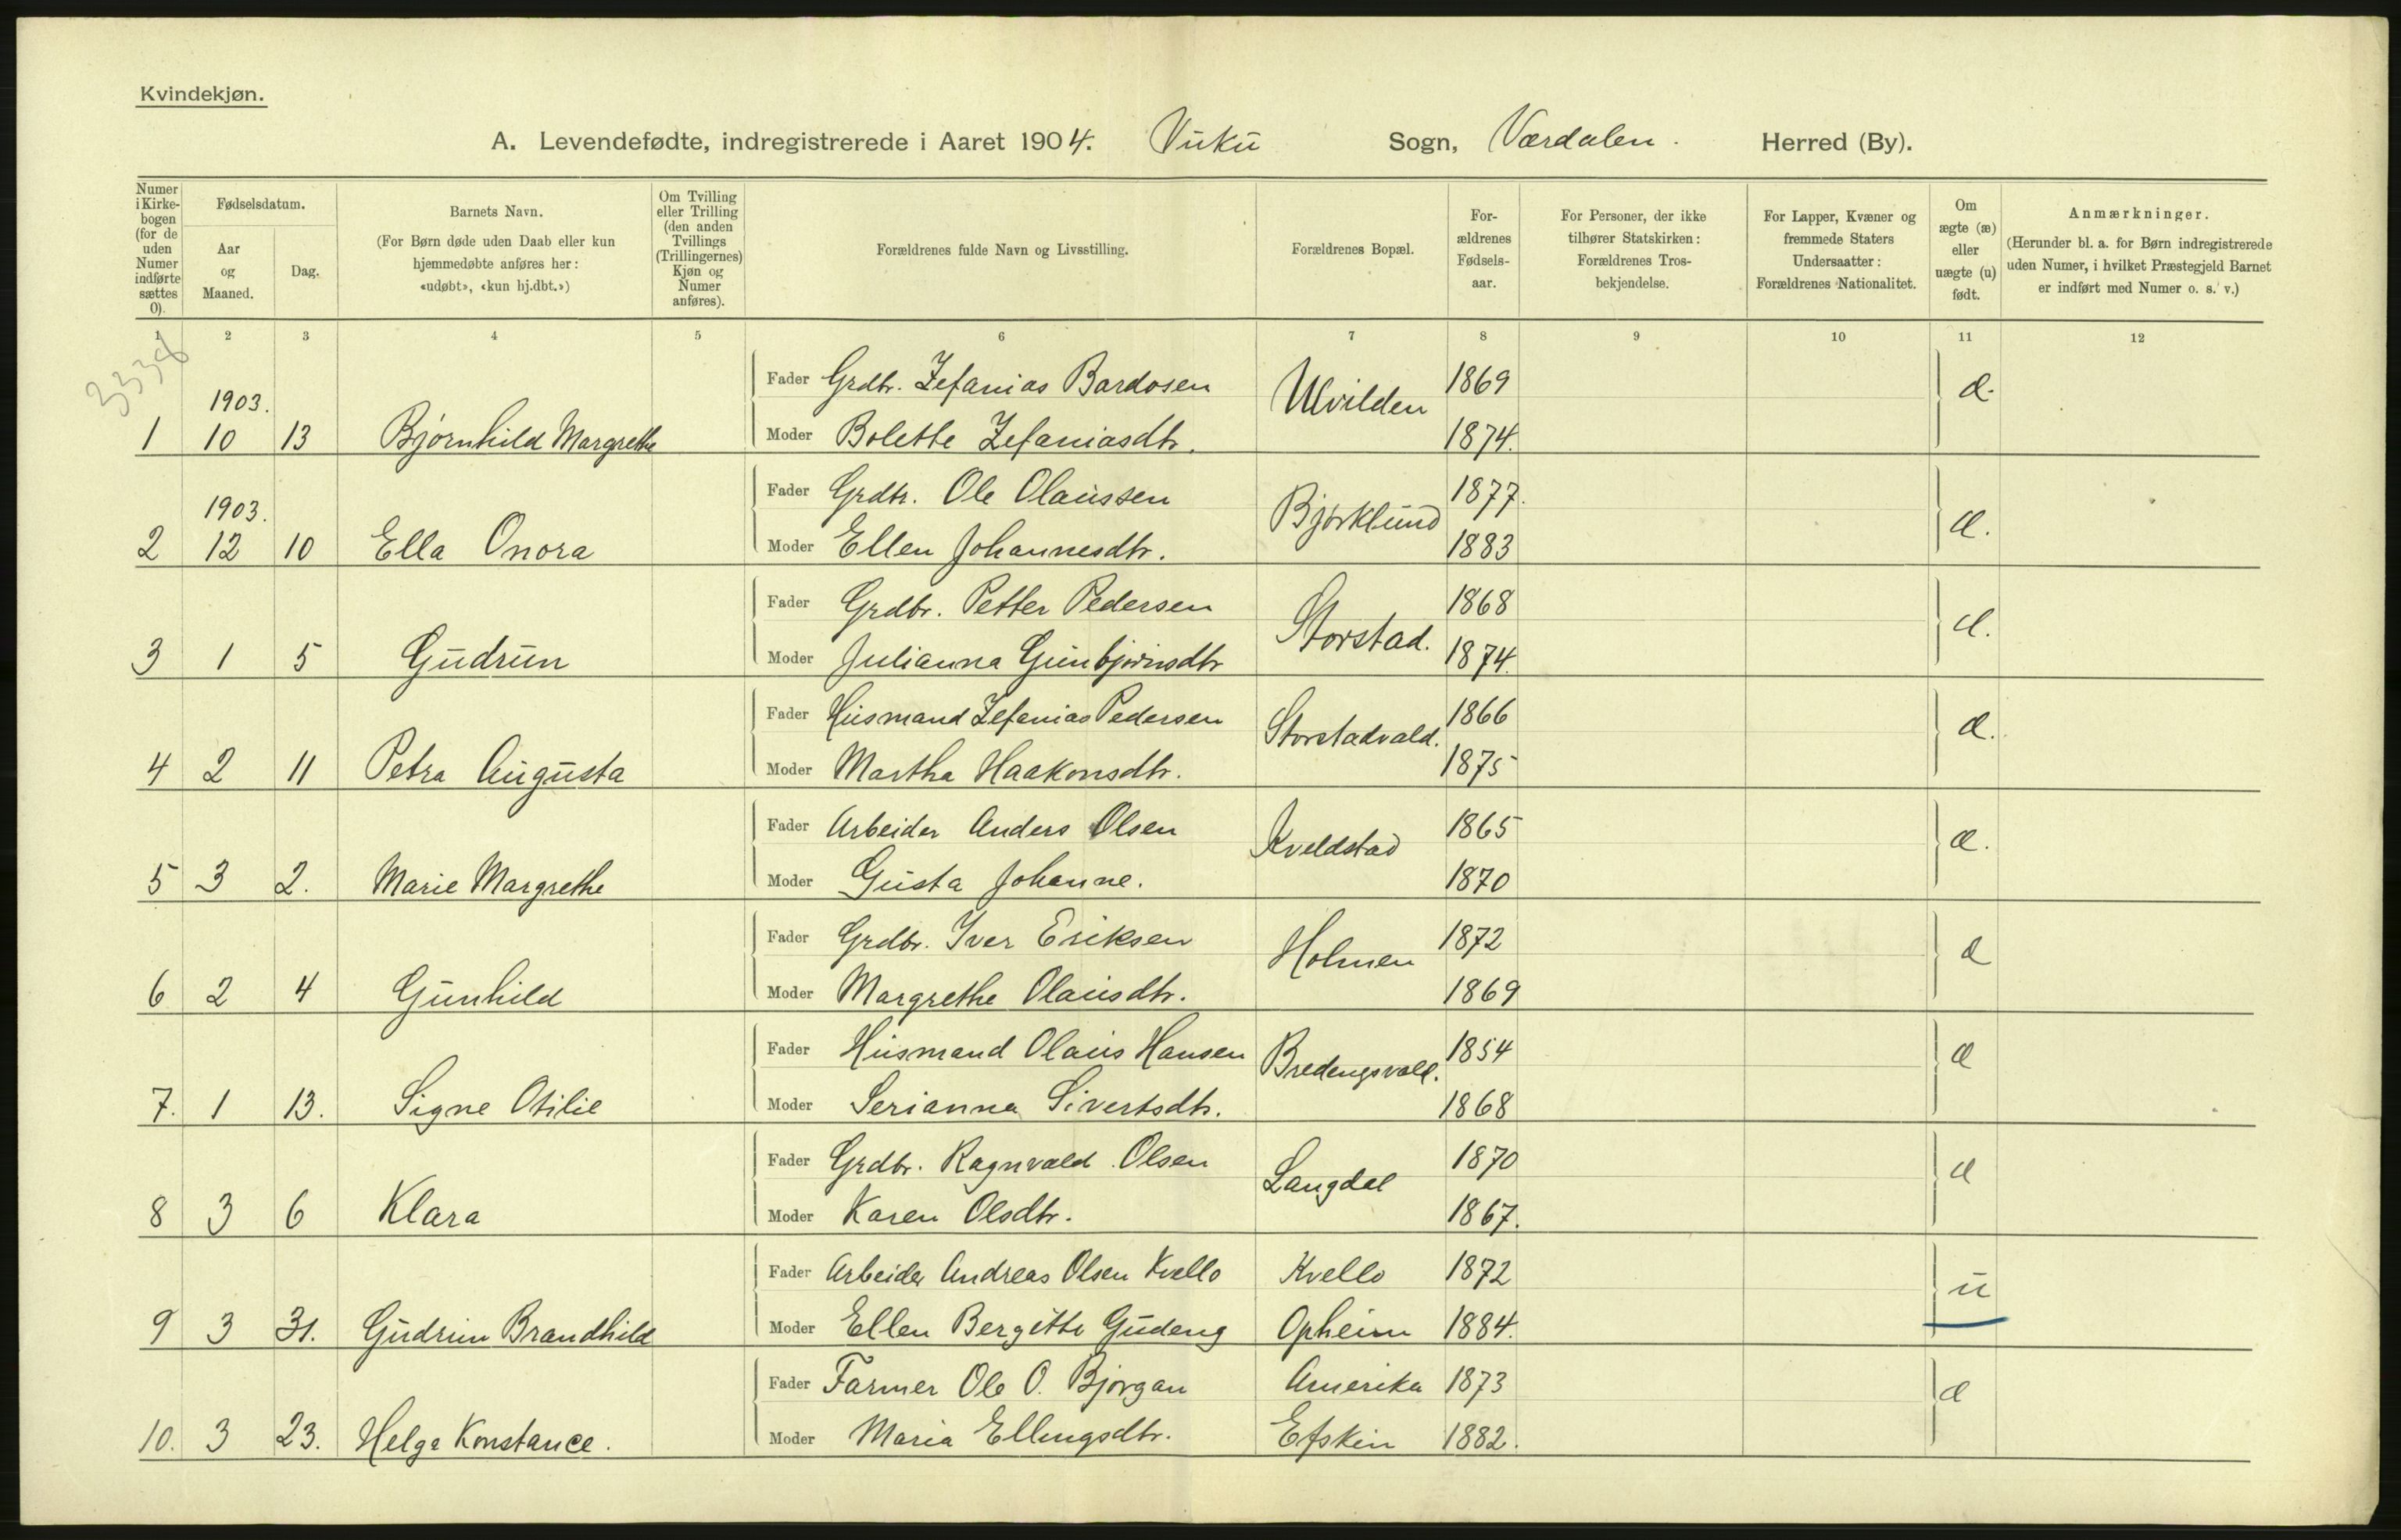 Kvindekjøn.
A. Levendefødte, indregistrerede i Aaret 1904. Vuku Sogn, Værdalen. Herred (By).
Numer i Kirkebogen (for de uden Numer indførte sættes 0).
Fødselsdatum.
Aar og Maaned.
Dag.
Barnets Navn.
(For Børn døde uden Daab eller kun hjemmedøbte anføres her: «udøbt», «kun hj.dbt.»)
Om Tvilling eller Trilling (den anden Tvillings (Trillingernes) Kjøn og Numer anføres).
Forældrenes fulde Navn og Livsstilling.
Forældrenes Bopæl.
Forældrenes Fødselsaar.
For Personer, der ikke tilhører Statskirken: Forældrenes Trosbekjendelse.
For Lapper, Kvæner og fremmede Staters Undersaatter: Forældrenes Nationalitet.
Om ægte (æ) eller uægte (u) født.
Anmærkninger.
(Herunder bl. a. for Børn indregistrerede uden Numer, i hvilket Præstegjeld Barnet er indført med Numer o. s. v.)
1 2 3 4 5 6 7 8 9 10 11 12
3338
Fader Grdbr. Zefanias Bardosen Ulvilden 1869 æ.
1903.
1 10 13 Bjørnhild Margrethe Moder Bolette Zefaniasdtr. 1874.
Fader Grdbr. Ole Olaussen Bjørklund 1877. æ.
1903.
2 12 10 Ella Onora Moder Ellen Johannesdtr. 1883
Fader Grdbr. Petter Pedersen Storstad. 1868 æ.
3 1 5 Gudrun Moder Julianna Gunbjørnsdtr 1874.
Fader Husmand Zefanias Pedersen Storstadvald. 1866 æ.
4 2 11 Petra Augusta Moder Martha Haakonsdtr. 1875
Fader Arbeider Anders Olsen Kveldstad 1865 æ.
5 3 2. Marie Margrethe Moder Gusta Johanne. 1870
Fader Grdbr. Iver Eriksen Holmen 1872 æ
6 2 4 Gunhild Moder Margrethe Olausdtr. 1869
Fader Husmand Olaus Hansen Bredengsvald. 1854 æ
7. 1 13. Signe Otilie Moder Serianna Sivertsdtr. 1868
Fader Grdbr. Ragnvald Olsen Langdal 1870 æ
8 3 6 Klara Moder Karen Olsdtr. 1867.
Fader Arbeider Andreas Olsen Kvello Kvello 1872 u
9 3 31. Gudrun Brandhild Moder Ellen Bergitte Gudeng Opheim 1884.
Fader Farmer Ole O. Bjørgan Amerika 1873 æ
10. 3 23. Helga Konstance. Moder Maria Ellingsdtr. Efskin 1882.